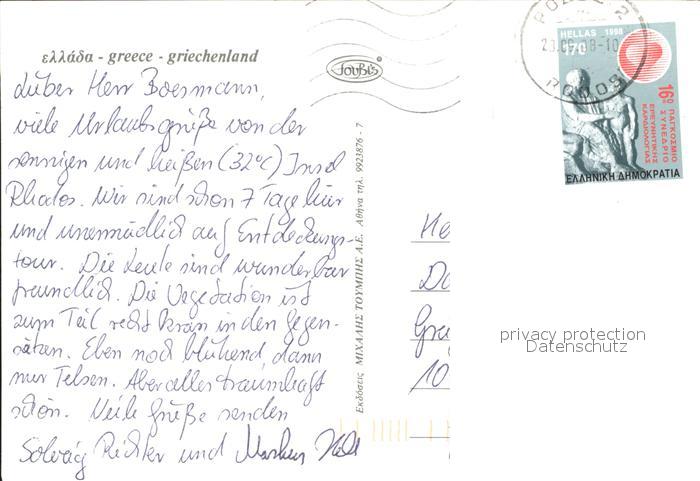 ελλάδα - greece - griechenland
Lieber Herr Boesmann,
viele Urlaubsgrüße von der
sonnigen und heißen (32°C) Insel
Rhodos. Wir sind schon 7 Tage hier
und unermüdlich auf Entdeckungs-
tour. Die Leute sind wunderbar
freundlich. Die Vegetation ist
zum Teil recht krass in den Gegen-
sätzen. Eben noch blühend dann
nur Felsen. Aber alles traumhaft
schön. Viele Grüße senden
Solveig Richter und Markus
Εκδόσεις ΜΙΧΑΛΗΣ ΤΟΥΜΠΗΣ Α.Ε. Αθήνα τηλ. 9923876 - 7
HELLAS 1998
170
16ο ΠΑΓΚΟΣΜΙΟ
ΣΥΝΕΔΡΙΟ
ΕΡΕΥΝΗΤΙΚΗΣ
ΚΑΡΔΙΟΛΟΓΙΑΣ
ΕΛΛΗΝΙΚΗ ΔΗΜΟΚΡΑΤΙΑ
RODOS
He
Do
Gra
10
privacy protection
Datenschutz